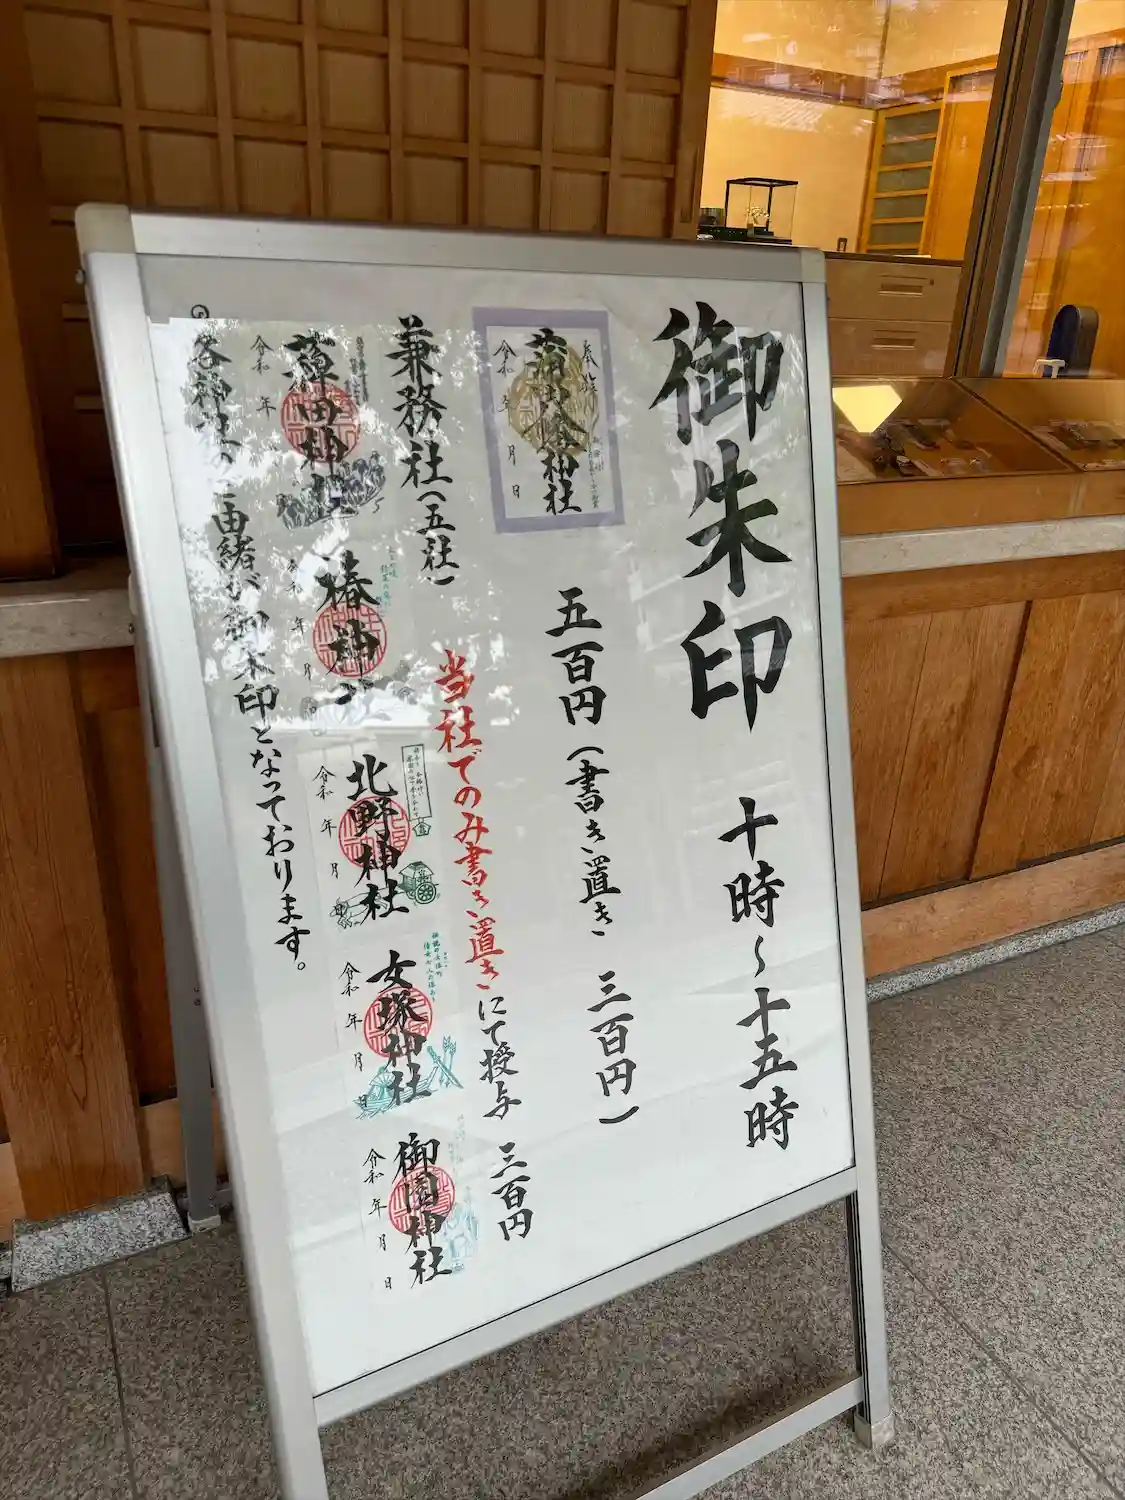 御朱印 十時～十五時
奉拝
蒲田八幡神社
令和 年 月 日
五百円（書き置き 三百円）
兼務社（五社）
当社でのみ書き置きにて授与 三百円
薭田神社
令和 年
椿神社
令和 年 月 日
北野神社
令和 年 月 日
女塚神社
令和 年 月 日
御園神社
令和 年 月 日
各神社の由緒が御朱印となっております。